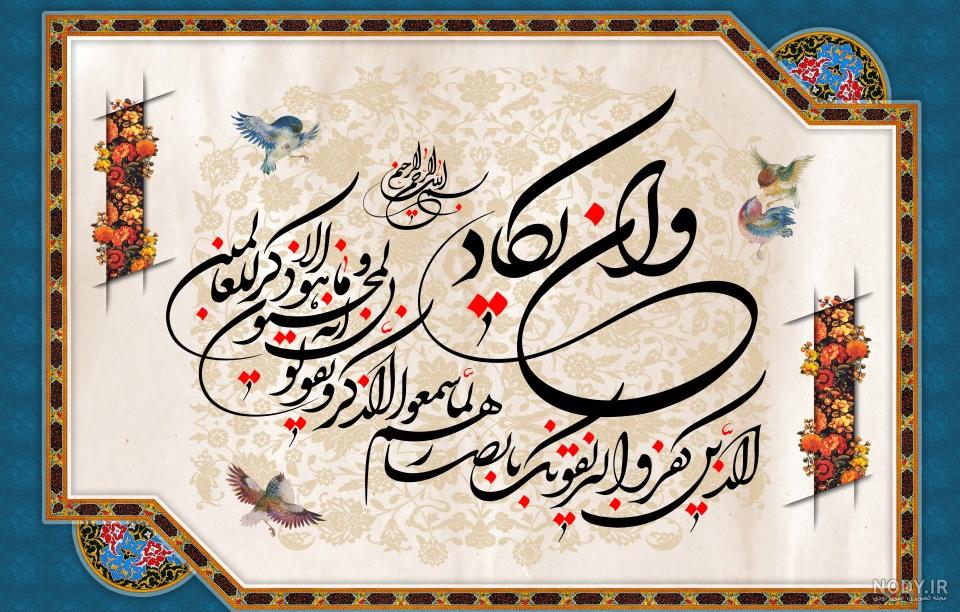 بسم الله الرحمن الرحیم
وان یکاد
الذین کفروا لیزلقونک بابصارهم
لما سمعوا الذکر ویقولون
انه لمجنون
وما هو الا
ذکر للعالمین
NODY.IR